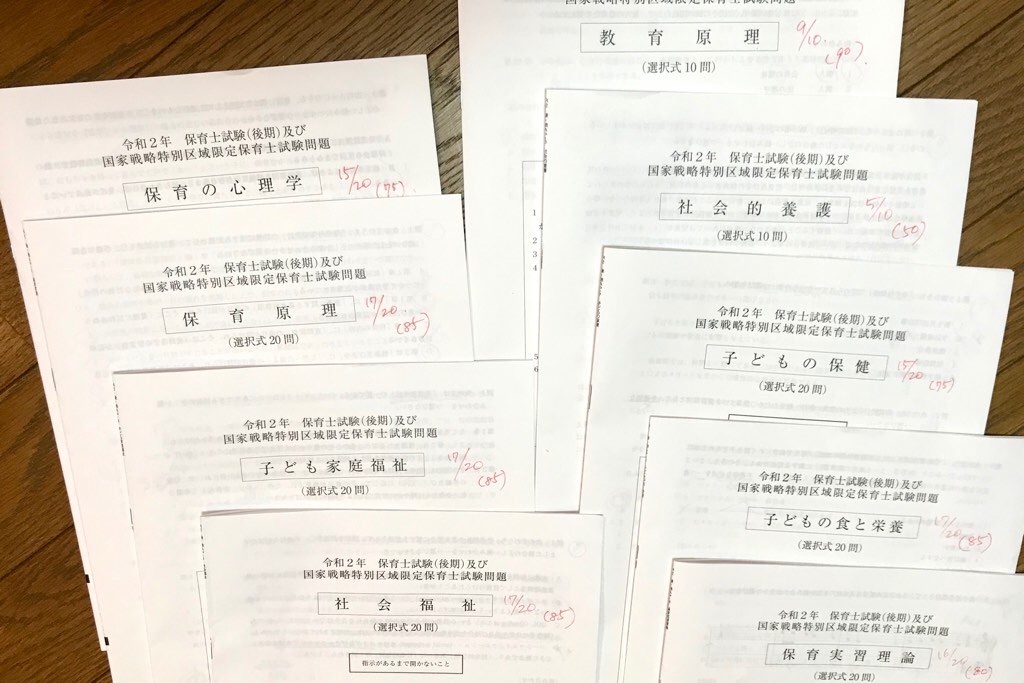 令和2年 保育士試験(後期)及び
国家戦略特別区域限定保育士試験問題
保育の心理学 15/20 (75)
令和2年 保育士試験(後期)及び
国家戦略特別区域限定保育士試験問題
保育原理 17/20 (85)
(選択式20問)
令和2年 保育士試験(後期)及び
国家戦略特別区域限定保育士試験問題
子ども家庭福祉 17/20 (85)
(選択式20問)
令和2年 保育士試験(後期)及び
国家戦略特別区域限定保育士試験問題
社会福祉 17/20 (85)
(選択式20問)
指示があるまで開かないこと
国家戦略特別区域限定保育士試験問題
教育原理 9/10 (90)
(選択式10問)
1
2
3
4
5
6
令和2年 保育士試験(後期)及び
国家戦略特別区域限定保育士試験問題
社会的養護 5/10 (50)
(選択式10問)
令和2年 保育士試験(後期)及び
国家戦略特別区域限定保育士試験問題
子どもの保健 15/20 (75)
(選択式20問)
令和2年 保育士試験(後期)及び
国家戦略特別区域限定保育士試験問題
子どもの食と栄養 17/20 (85)
(選択式20問)
令和2年 保育士試験(後期)及び
国家戦略特別区域限定保育士試験問題
保育実習理論 16/20 (80)
(選択式20問)